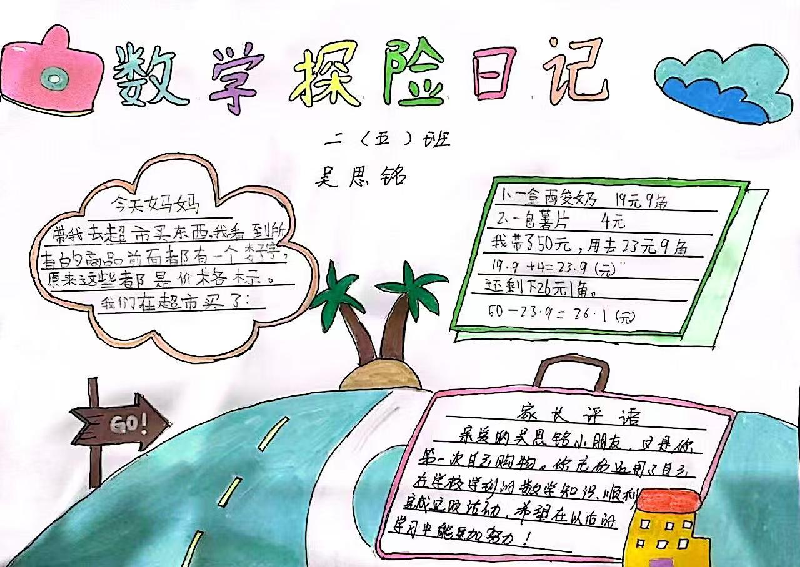 数学探险日记
二（五）班
吴思铭
今天妈妈
带我去超市买东西,我看到所
有的商品前面都有一个数字。
原来这些都是价格标。
我们在超市买了：
1.一盒西安奶 19元9角
2.一包薯片 4元
我带了50元，用去23元9角
19.9+4=23.9(元)
还剩下26元1角。
50-23.9=36.1(元)
GO!
家长评语
亲爱的吴思铭小朋友,这是你
第一次自己购物。你充分运用了自己
在学校学到的数学知识,顺利
完成这次活动,希望在以后的
学习中能更加努力!